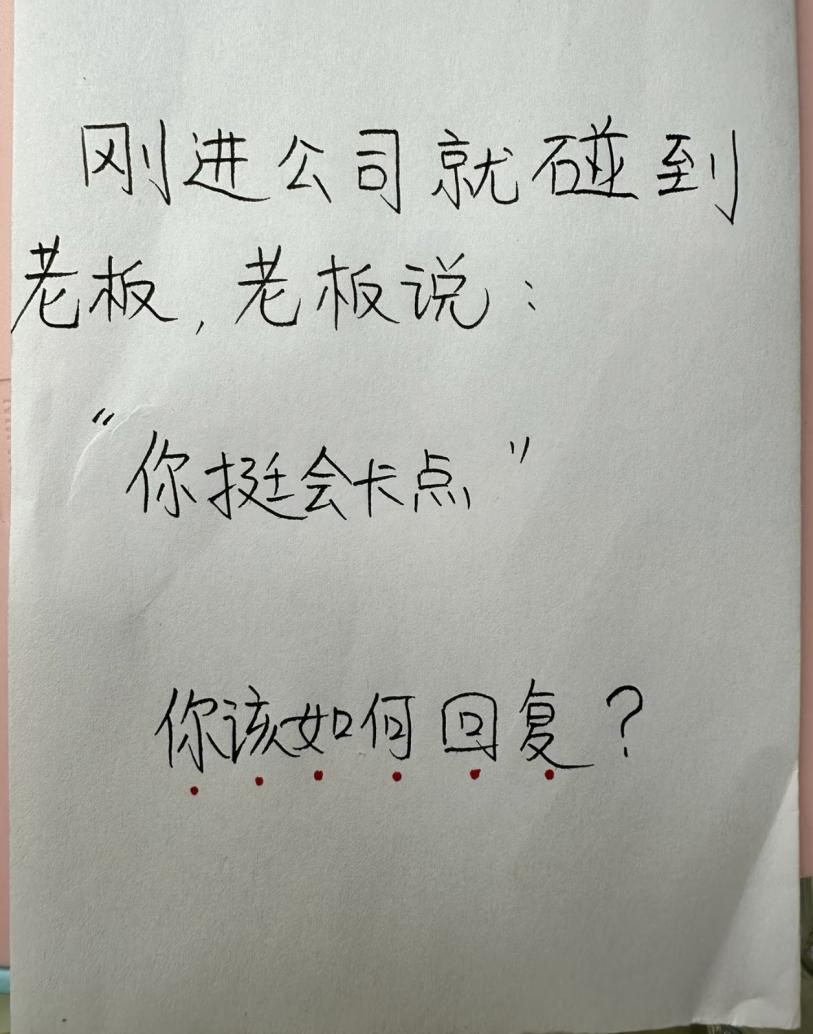 刚进公司就碰到
老板,老板说:
“你挺会卡点”
你该如何回复?